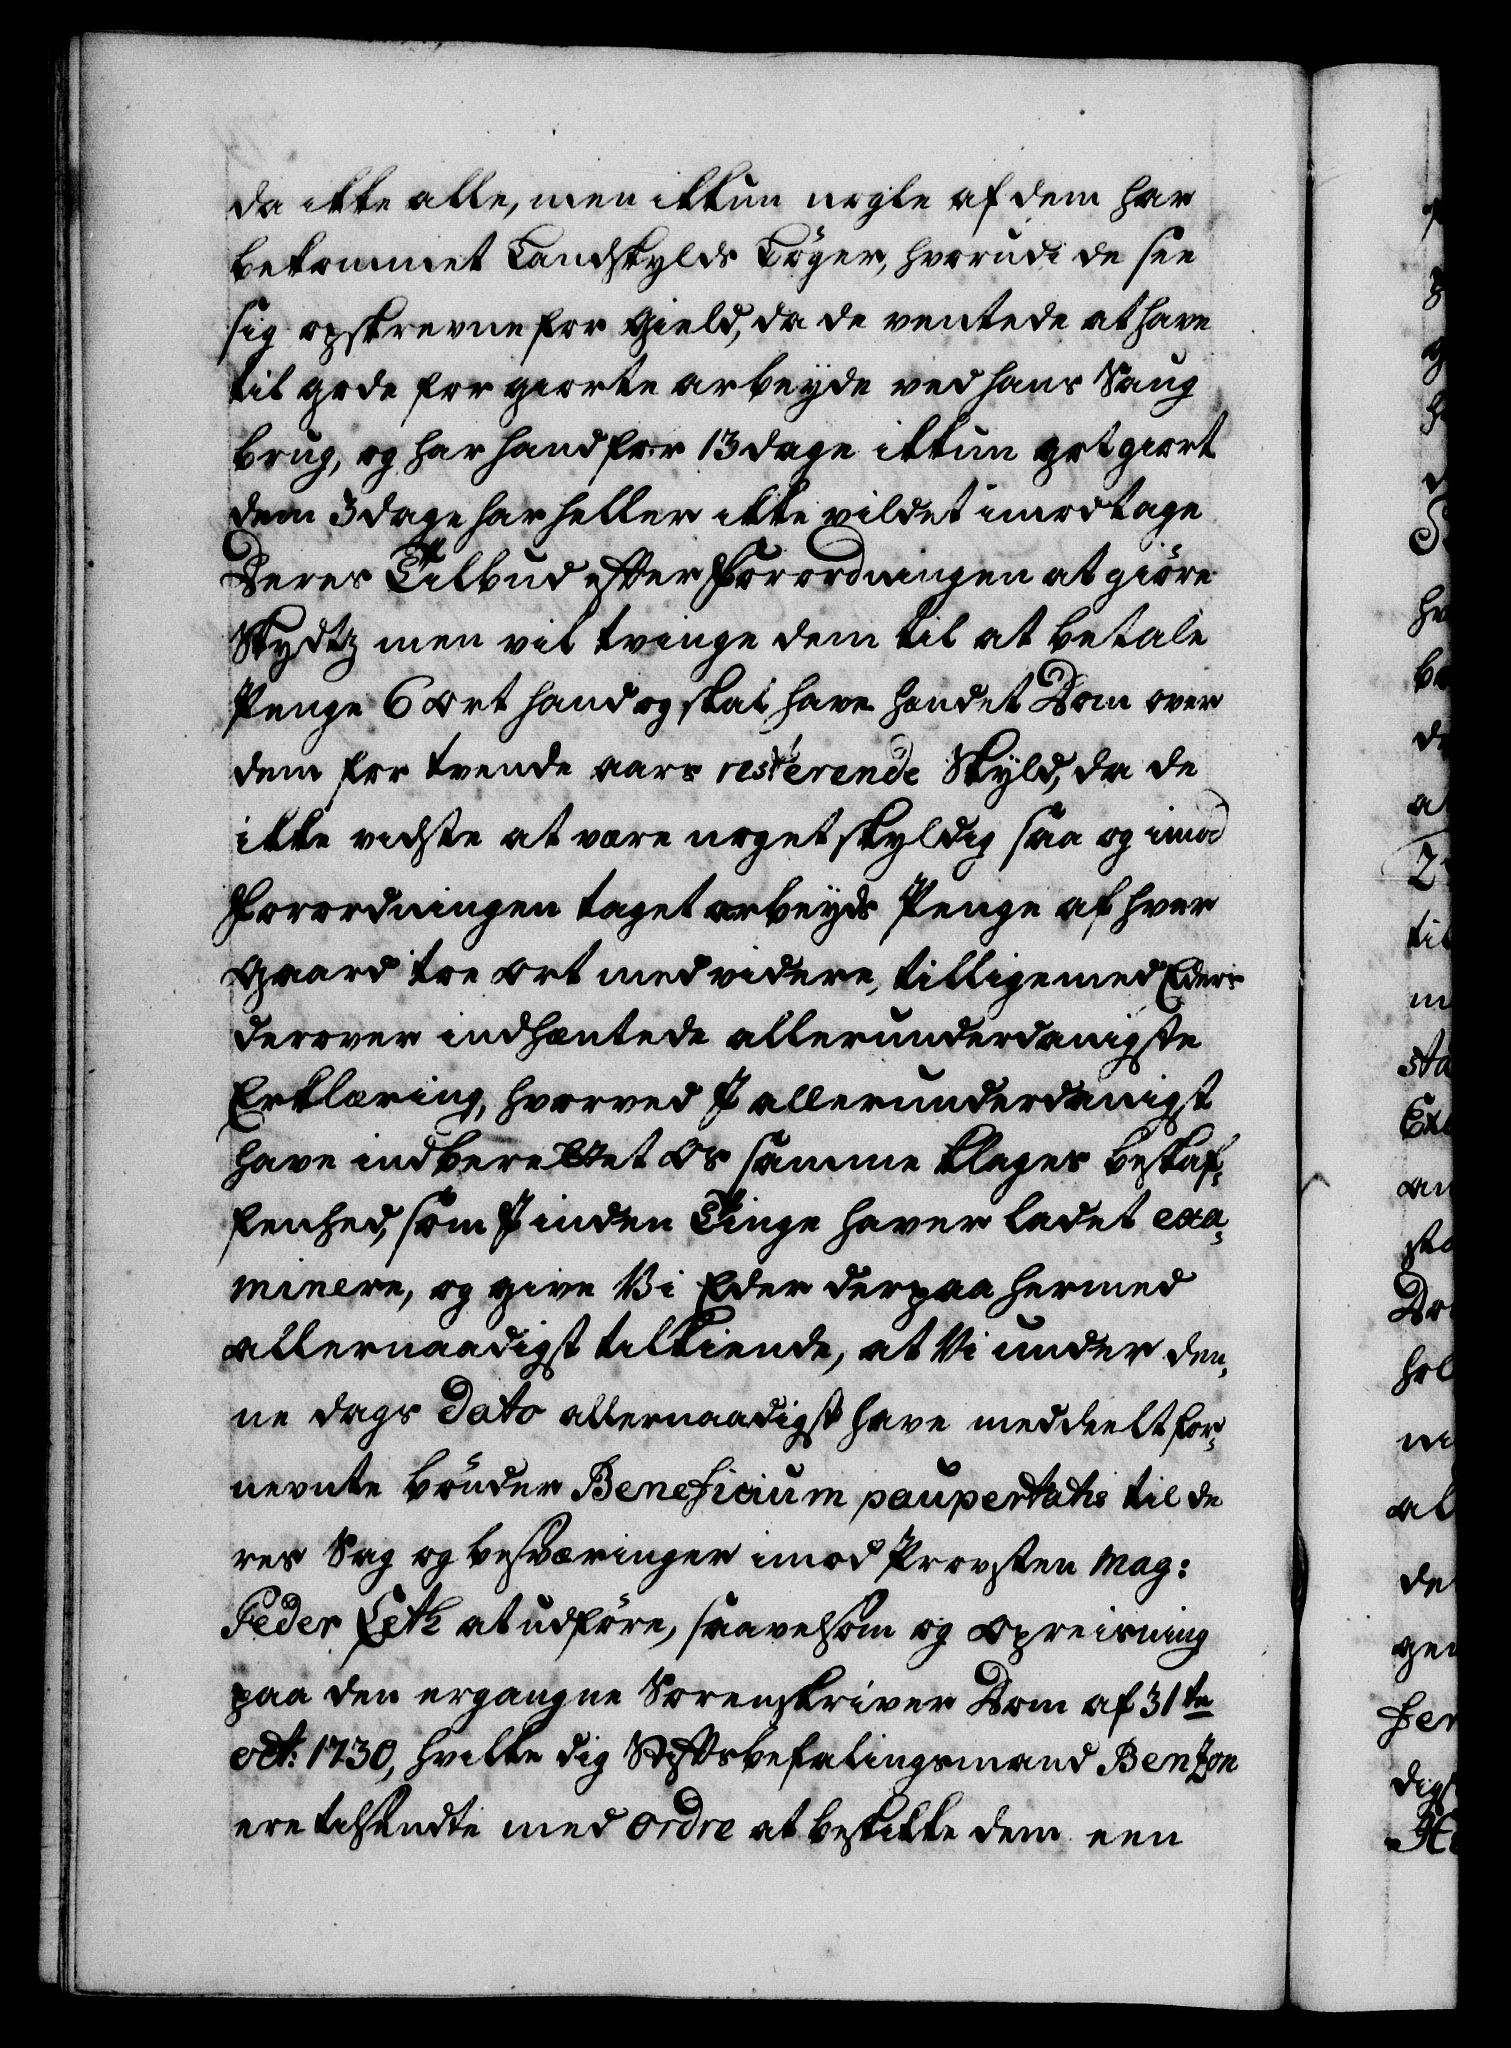 da ikke alle, men ikkun nogle af dem har
bekommet Landskylds Bøger, hvorudi de see
sig opskrevne for Gield, da de ventede at have
til gode for giorte arbeyde ved hans Saug
brug, og har hand for 13 dage ikkun got giort
dem 3 dage har heller ikke vildet imodtage
Deres Tilbud efter Forordningen at giöre
Skydtz men vil tvinge dem til at betale
Penge 6 Ort hand og skal have hendet Dom over
dem for tvende aars resterende Skyld, da de
ikke vidste at være noget skyldig saa og imod
Forordningen taget arbeyds Penge af hver
Gaard tre Ort med videre, tilligemed Eders
derover indhentede allerunderdanigste
Erklæring, hvorved I allerunderdanigst
have indberettet Os samme klages beskaf-
fenhed, som I inden Tinge haver ladet exa-
minere, og give Vi Eder derpaa hermed
allernaadigst tilkiende, at Vi under den-
ne dags Dato allernaadigst have meddeelt for-
nevnte bönder Beneficium paupertatis til de
res Sag og besværinger imod Provsten Mag:
Peder at udföre, saavelsom og Opreisning
paa den ergangne Sorenskriver Dom af 31te
oct: 1730, hvilke dig Stiftsbefalingsmand Benzon
ere tilsendte med Ordre at beskikke dem een